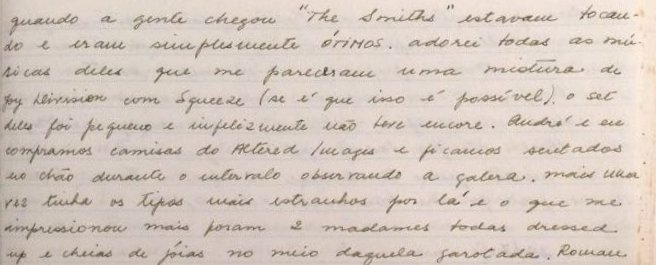 quando a gente chegou "The Smiths" estavam tocan-
do e eram simplesmente ÓTIMOS. adorei todas as mú-
sicas deles que me pareceram uma mistura de
Joy Division com Squeeze (se é que isso é possível). o set
deles foi pequeno e infelizmente não teve encore. André e eu
compramos camisas do Altered Images e ficamos sentados
no chão durante o intervalo observando a galera. mais uma
vez tinha os tipos mais estranhos por lá e o que me
impressionou mais foram 2 madames todas dressed
up e cheias de jóias no meio daquela garotada. Roman